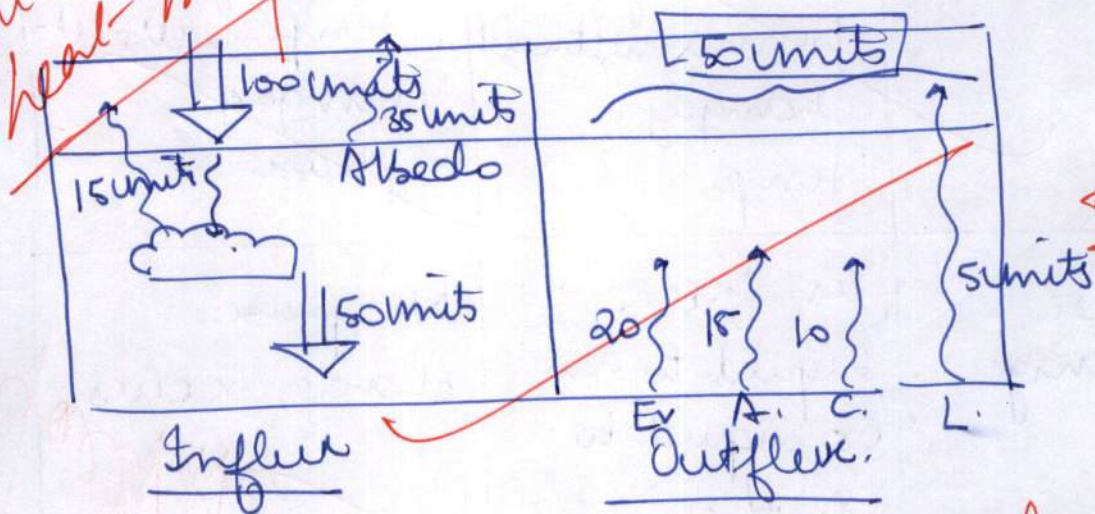 heat
100 units
35 units
Albedo
15 units
50 units
Influx
50 units
20
15
10
5 units
Ev
A.
C.
L.
Outflux.